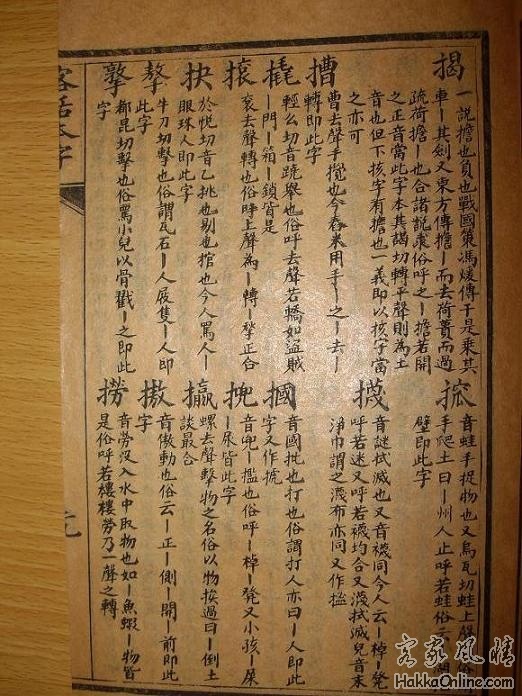 揭
一說擔也負也戰國策馮煖傳于是乘其
車｜其劍又東方傳擔｜而去荷蕢而過
疏荷擔｜也合諸說俗呼之｜擔若開
之正音當此字本其謁切轉平聲則為土
音也但下孩字有擔也一義即以孩字當
之亦可
曹去聲手攪也今舂米用手｜之｜去｜
轉即此字
撬
輕么切音蹺舉也俗呼去聲若轎如盜賊
｜門｜箱｜鎖皆是
㨰
袞去聲轉也俗呼上聲為｜轉｜正合
抉
於悅切音乙挑也剔也揞也今人罵人｜
眼珠人即此字
摮
牛刀切擊也俗謂瓦石｜人屐隻｜人即
此字
撉
都昆切擊也俗罵小兒以骨戳｜之即此
字
音蛙手捉物也又烏瓦切蛙上聲俗
手爬土曰｜州人止呼若蛙俗
壁即此字
音謎拭滅也又音襪同今人云｜棹｜凳
呼若迷又呼若襪均合又濊拭滅皃音末
淨巾謂之濊布亦同又作
摑
音國批也打也俗謂打人亦曰｜人即此
字又作
音也俗呼｜棹｜凳又小孩｜屎
｜尿皆此字
螺去聲擊物之名俗以物挨過曰｜倒土
談最合
音傲動也俗云｜正｜側｜開｜前即此
字
撈
音勞沒入水中取物也如｜魚蝦｜物皆
是俗呼若樓勞乃一聲之轉
客話本字
客家風情
HakkaOnline.com